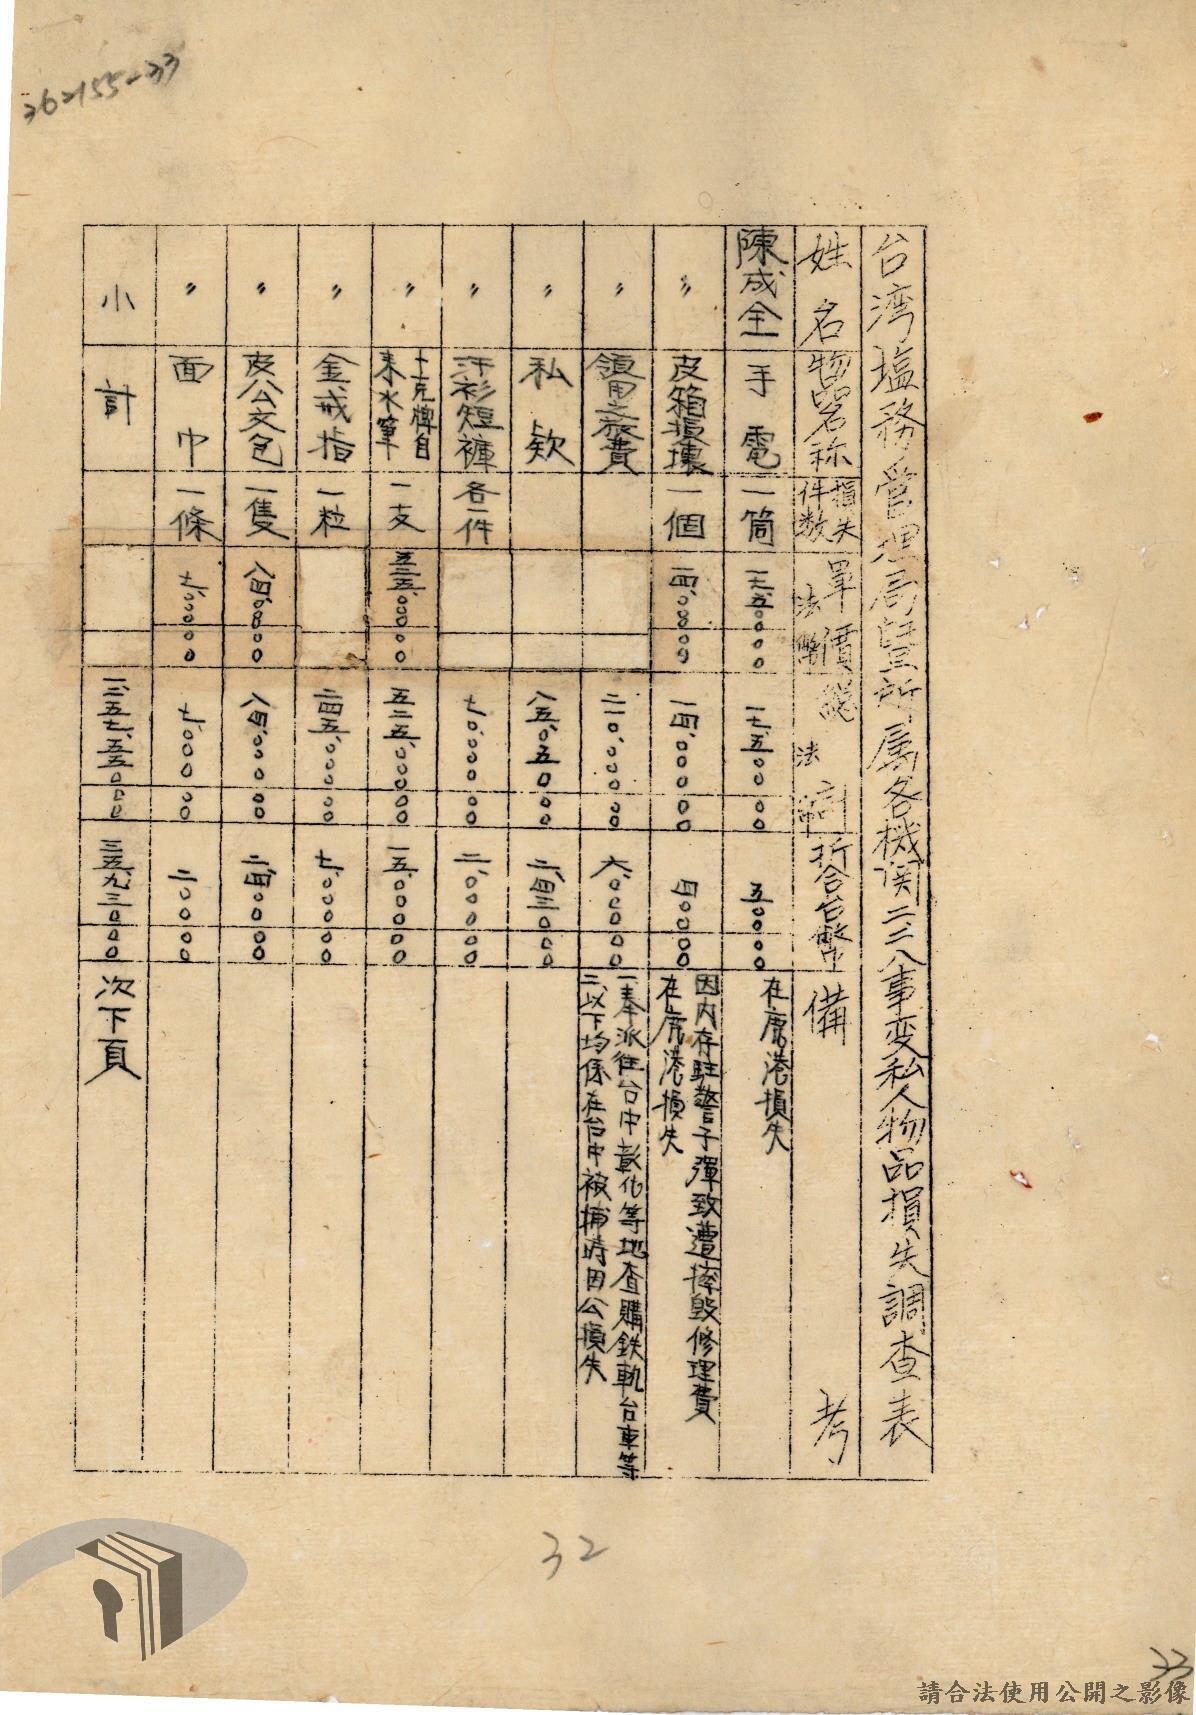 362-155-33
台湾塩務管理局暨所属各機関二二八事変私人物品損失調查表
姓名 物品名称 損失件数 單價 法幣 總 法 幣 折合台幣 備考
陳成全 手電 一筒 一七、五〇〇 〇〇 一七、五〇〇 〇〇 五〇〇 〇〇 在鹿港損失
〃 皮箱損壞 一個 一四、〇〇〇 〇〇 一四、〇〇〇 〇〇 四〇〇 〇〇 因内存駐警子彈致遭摔毀修理費
在鹿港損失
〃 領用之旅費 二一〇、〇〇〇 〇〇 六、〇〇〇 〇〇 一、奉派往台中彰化等地查購鉄軌台車等
二、以下均係在台中被捕時因公損失
〃 私欵 八五、〇五〇 〇〇 二、四三〇 〇〇
〃 汗衫短褲 各一件 七〇、〇〇〇 〇〇 二、〇〇〇 〇〇
〃 士克牌自来水筆 一支 五二五、〇〇〇 〇〇 五二五、〇〇〇 〇〇 一五、〇〇〇 〇〇
〃 金戒指 一粒 二四五、〇〇〇 〇〇 七、〇〇〇 〇〇
〃 皮公文包 一隻 八四、〇〇〇 〇〇 八四、〇〇〇 〇〇 二、四〇〇 〇〇
〃 面巾 一條 七、〇〇〇 〇〇 七、〇〇〇 〇〇 二〇〇 〇〇
小計 一、二五七、五五〇 〇〇 三五、九三〇 〇〇 次下頁
32
33
請合法使用公開之影像